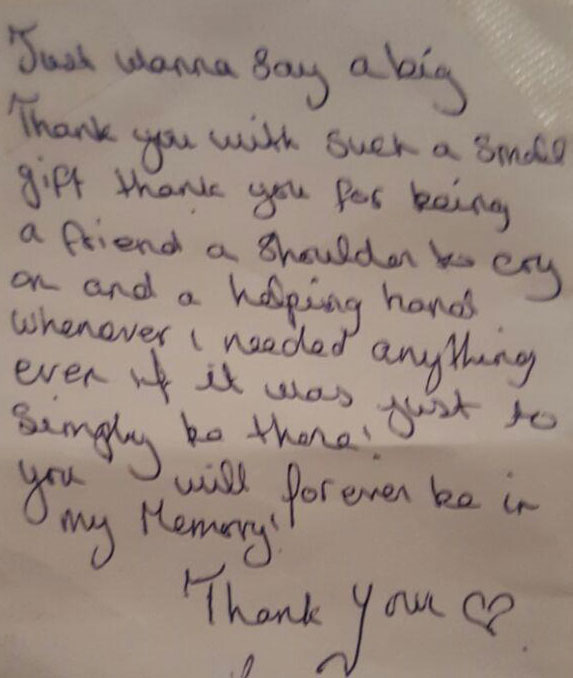 Just wanna say a big
Thank you with such a small
gift thank you for being
a friend a shoulder to cry
on and a helping hand
whenever i needed anything
even if it was just to
simply be there!
you will forever be in
my Memory!
Thank you ♡